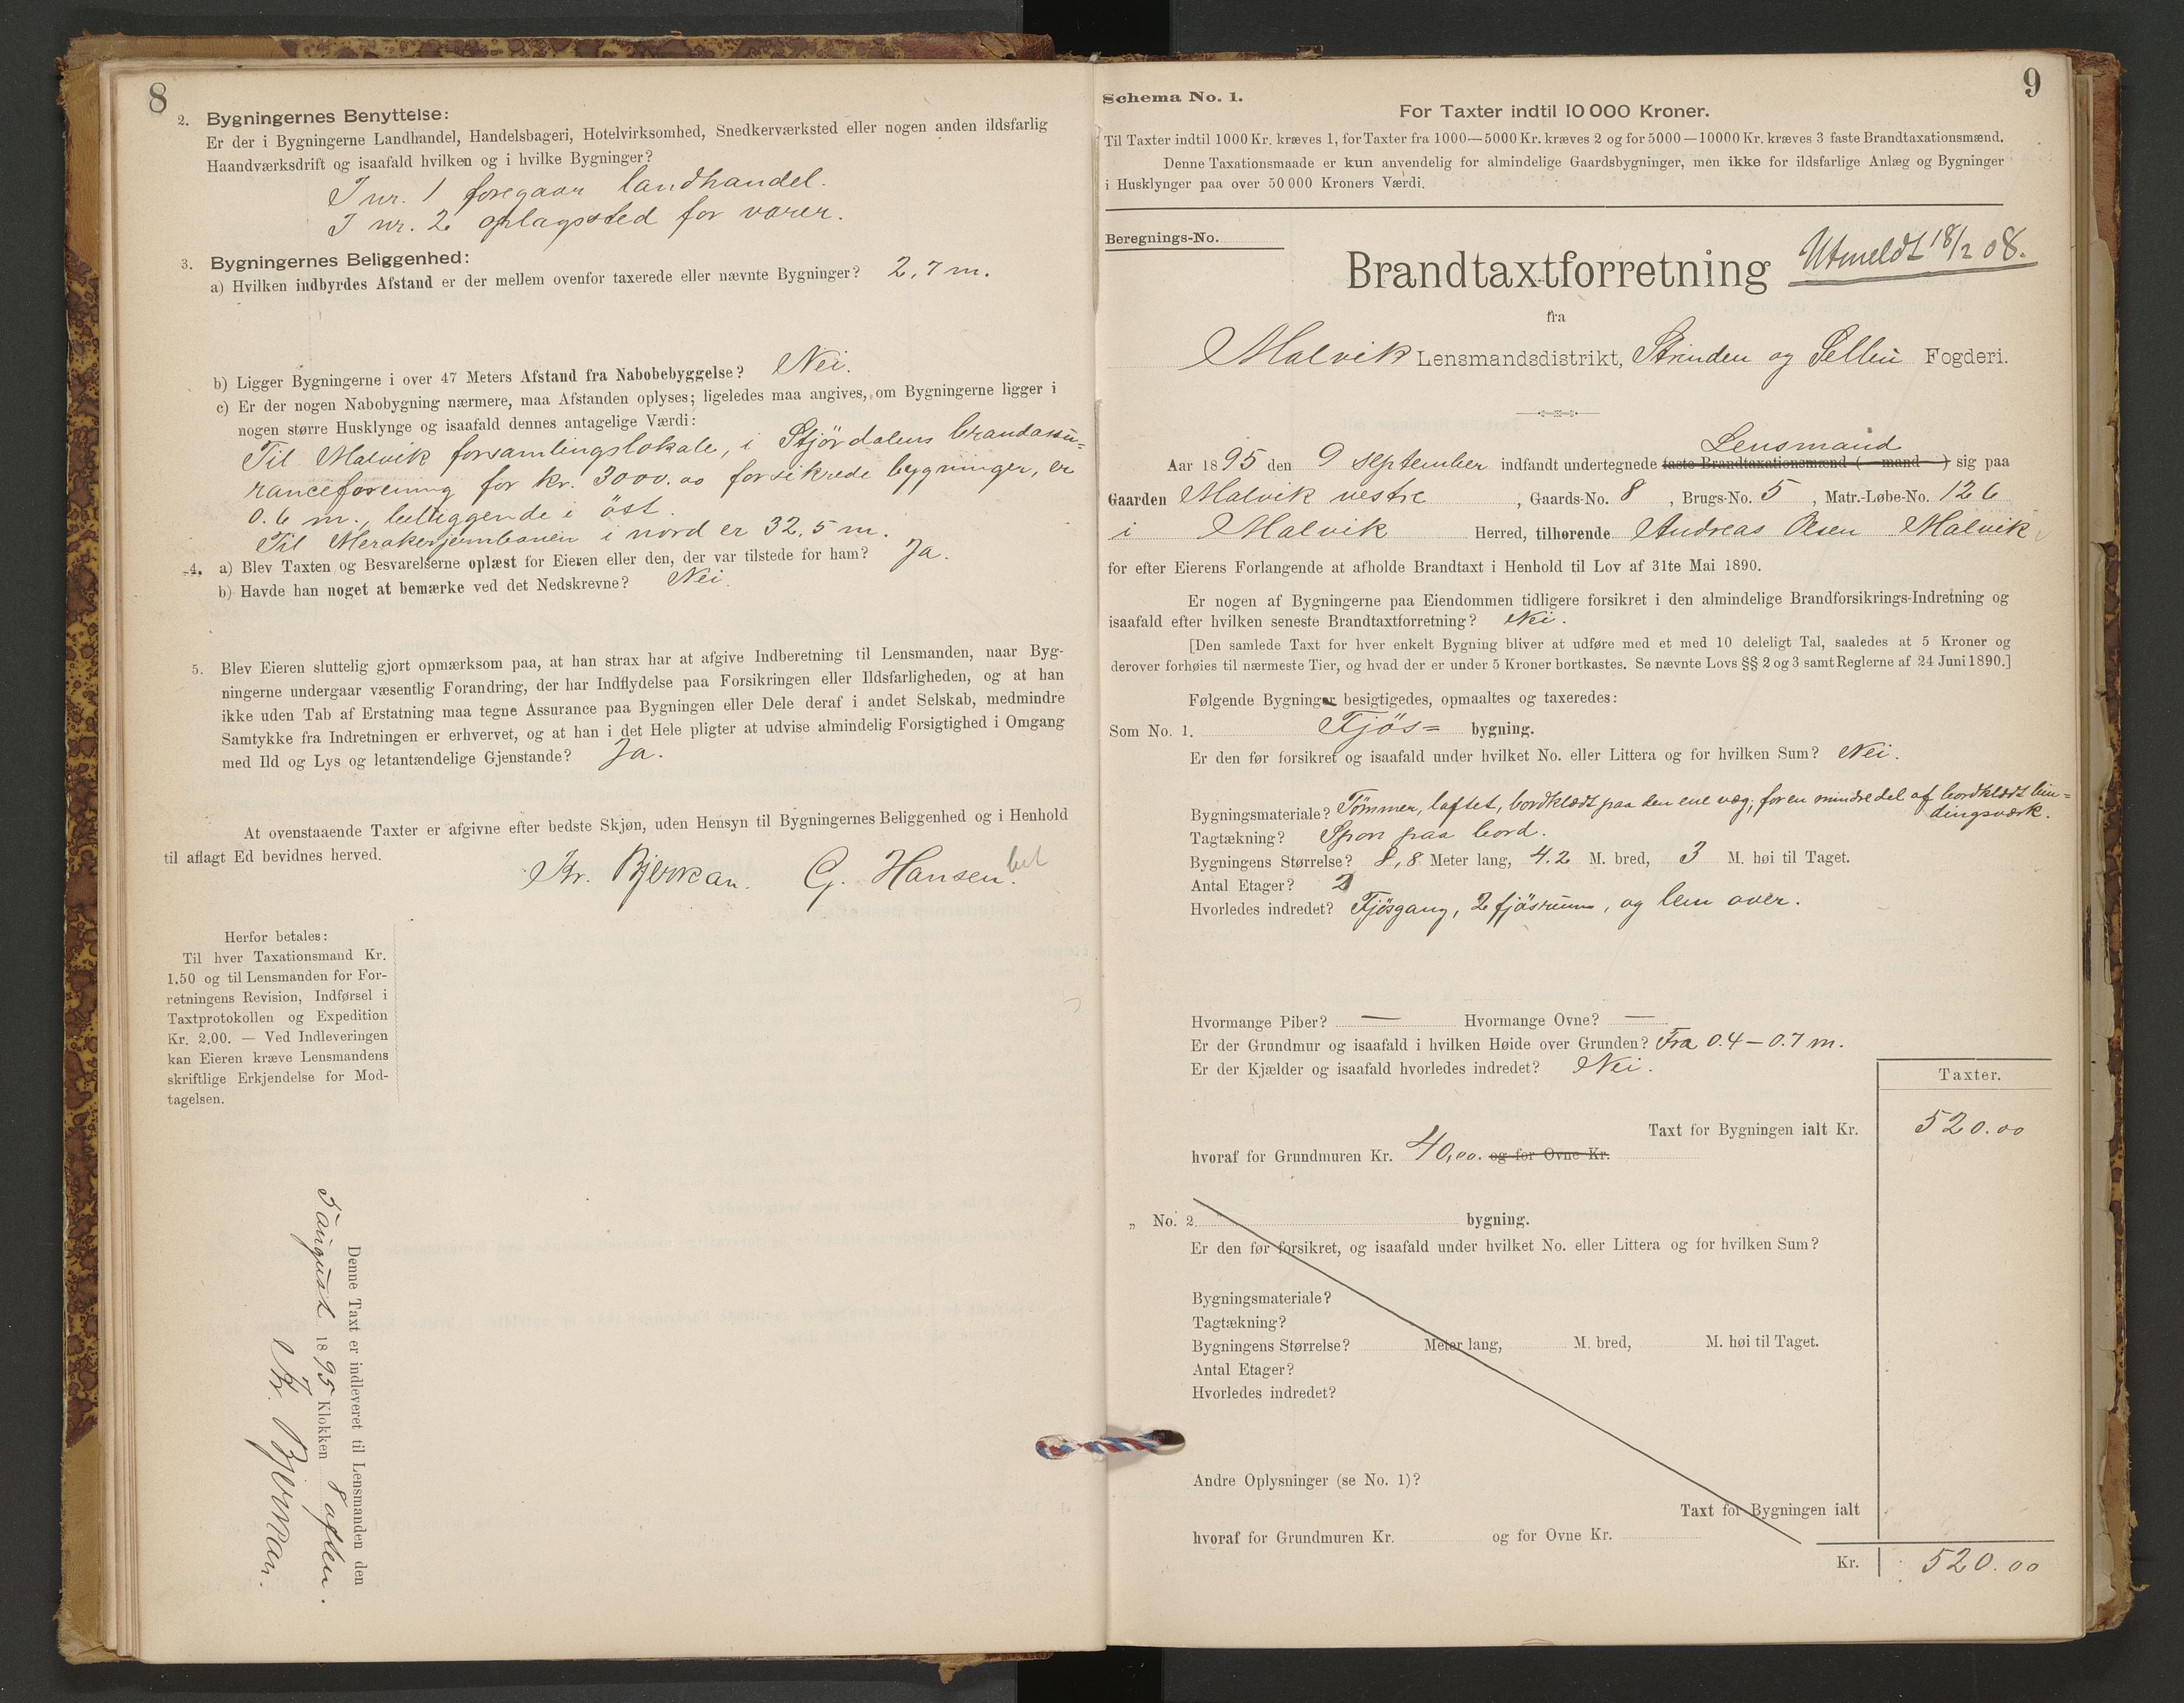 8
2. Bygningernes Benyttelse:
Er der i Bygningerne Landhandel, Handelsbageri, Hotelvirksomhed, Snedkerværksted eller nogen anden ildsfarlig
Haandværksdrift og isaafald hvilken og i hvilke Bygninger?
I nr. 1 foregaar landhandel.
I nr. 2 oplagssted for varer.
3. Bygningernes Beliggenhed:
a) Hvilken indbyrdes Afstand er der mellem ovenfor taxerede eller nævnte Bygninger? 2,7 m.
b) Ligger Bygningerne i over 47 Meters Afstand fra Nabobebyggelse? Nei.
c) Er der nogen Nabobygning nærmere, maa Afstanden oplyses; ligeledes maa angives, om Bygningerne ligger i
nogen større Husklynge og isaafald dennes antagelige Værdi:
Til Malvik forsamlingslokale, i Stjördalens brandassu-
ranceforening for kr. 3000.00 forsikrede bygninger, er
0.6 m., beliggende i öst.
Til Merakerjernbanen i nord er 32,5 m.
4. a) Blev Taxten og Besvarelserne oplæst for Eieren eller den, der var tilstede for ham? Ja.
b) Havde han noget at bemærke ved det Nedskrevne? Nei.
5. Blev Eieren sluttelig gjort opmærksom paa, at han strax har at afgive Indberetning til Lensmanden, naar Byg-
ningerne undergaar væsentlig Forandring, der har Indflydelse paa Forsikringen eller Ildsfarligheden, og at han
ikke uden Tab af Erstatning maa tegne Assurance paa Bygningen eller Dele deraf i andet Selskab, medmindre
Samtykke fra Indretningen er erhvervet, og at han i det Hele pligter at udvise almindelig Forsigtighed i Omgang
med Ild og Lys og letantændelige Gjenstande? Ja.
At ovenstaaende Taxter er afgivne efter bedste Skjøn, uden Hensyn til Bygningernes Beliggenhed og i Henhold
til aflagt Ed bevidnes herved.
Kr. Bjerkan. G. Hansen.
Herfor betales:
Til hver Taxationsmand Kr.
1.50 og til Lensmanden for For-
retningens Revision, Indførsel i
Taxtprotokollen og Expedition
Kr. 2.00. — Ved Indleveringen
kan Eieren kræve Lensmandens
skriftlige Erkjendelse for Mod-
tagelsen.
Denne Taxt er indleveret til Lensmanden den
5 august 1895 Klokken 8 aften.
Kr. Bjerkan.
9
Schema No. 1.
For Taxter indtil 10 000 Kroner.
Til Taxter indtil 1000 Kr. kræves 1, for Taxter fra 1000—5000 Kr. kræves 2 og for 5000—10000 Kr. kræves 3 faste Brandtaxationsmænd.
Denne Taxationsmaade er kun anvendelig for almindelige Gaardsbygninger, men ikke for ildsfarlige Anlæg og Bygninger
i Husklynger paa over 50 000 Kroners Værdi.
Beregnings-No.
Utmeldt 18/2 08.
Brandtaxtforretning
fra
Malvik Lensmandsdistrikt, Strinden og Selbu Fogderi.
Lensmand
Aar 1895 den 9 september indfandt undertegnede faste Brandtaxationsmænd ( mand ) sig paa
Gaarden Malvik vestre, Gaards-No. 8, Brugs-No. 5, Matr.-Løbe-No. 126
i Malvik Herred, tilhørende Andreas Olsen Malvik
for efter Eierens Forlangende at afholde Brandtaxt i Henhold til Lov af 31te Mai 1890.
Er nogen af Bygningerne paa Eiendommen tidligere forsikret i den almindelige Brandforsikrings-Indretning og
isaafald efter hvilken seneste Brandtaxtforretning? Nei.
[Den samlede Taxt for hver enkelt Bygning bliver at udføre med et med 10 deleligt Tal, saaledes at 5 Kroner og
derover forhøies til nærmeste Tier, og hvad der er under 5 Kroner bortkastes. Se nævnte Lovs §§ 2 og 3 samt Reglerne af 24 Juni 1890.]
Følgende Bygninger besigtigedes, opmaaltes og taxeredes:
Som No. 1. Fjös= bygning.
Er den før forsikret og isaafald under hvilket No. eller Littera og for hvilken Sum? Nei.
Bygningsmateriale? Tömmer, laftet, bordklædt paa den ene væg, for en mindre del af bordklædt bin-
dingsværk.
Tagtækning? Spon paa bord.
Bygningens Størrelse? 8,8 Meter lang, 4.2 M. bred, 3 M. høi til Taget.
Antal Etager? 2
Hvorledes indredet? Fjösgang, 2 fjösrum, og lem over.
Hvormange Piber? — Hvormange Ovne? —
Er der Grundmur og isaafald i hvilken Høide over Grunden? Fra 0.4–0.7 m.
Er der Kjælder og isaafald hvorledes indredet? Nei.
Taxter.
Taxt for Bygningen ialt Kr. 520.00
hvoraf for Grundmuren Kr. 40,00. og for Ovne Kr.
„ No. 2 bygning.
Er den før forsikret, og isaafald under hvilket No. eller Littera og for hvilken Sum?
Bygningsmateriale?
Tagtækning?
Bygningens Størrelse? Meter lang, M. bred, M. høi til Taget.
Antal Etager?
Hvorledes indredet?
Andre Oplysninger (se No. 1)?
Taxt for Bygningen ialt
hvoraf for Grundmuren Kr. og for Ovne Kr.
Kr. 520.00